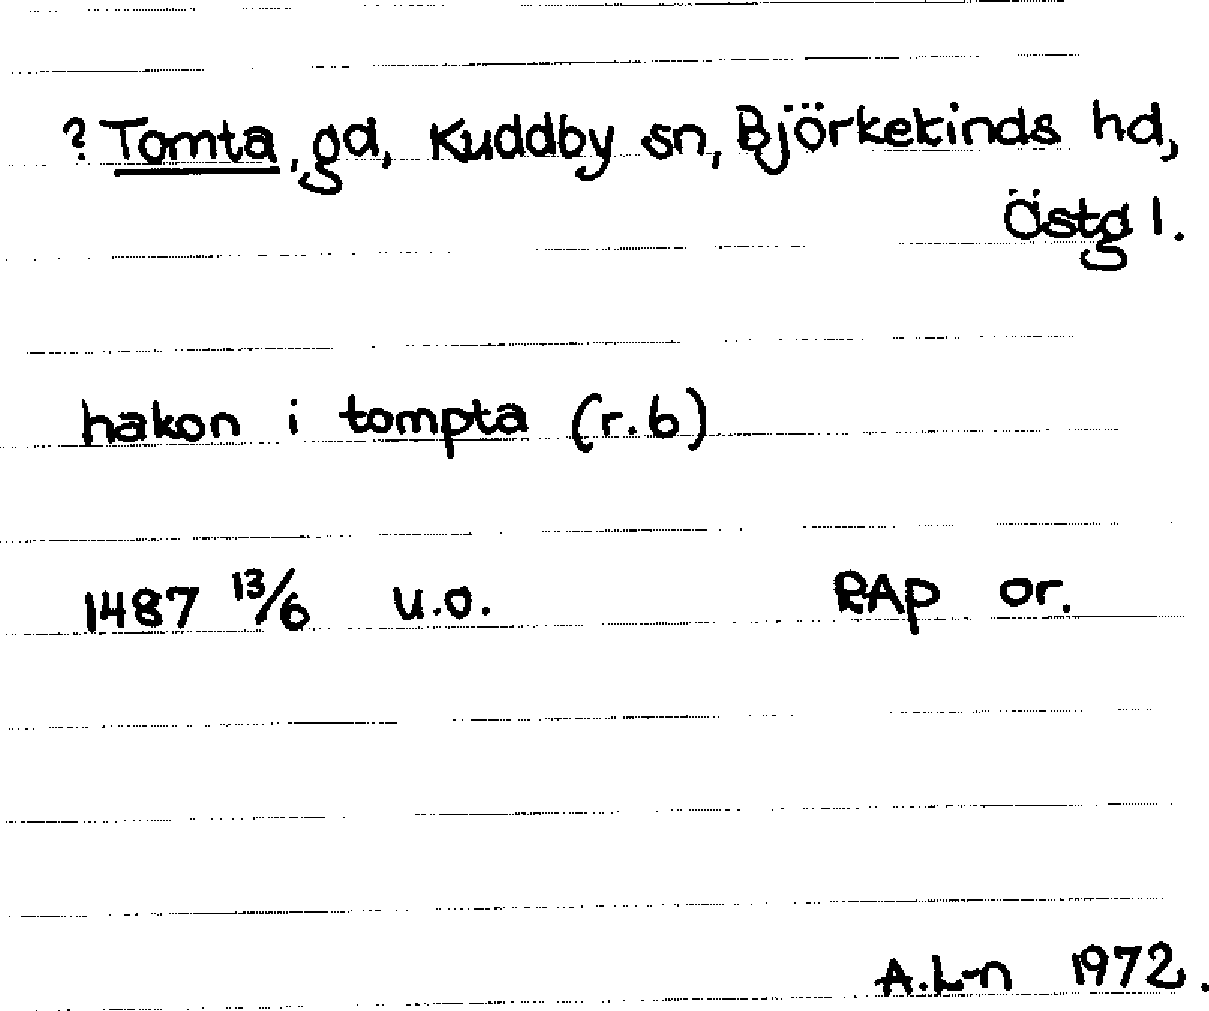 ? Tomta, gd, Kuddby sn, Björkekinds hd,
Östg l.
hakon i tompta (r.6)
1487 13/6 u.o. RAp or.
A.L-n 1972.